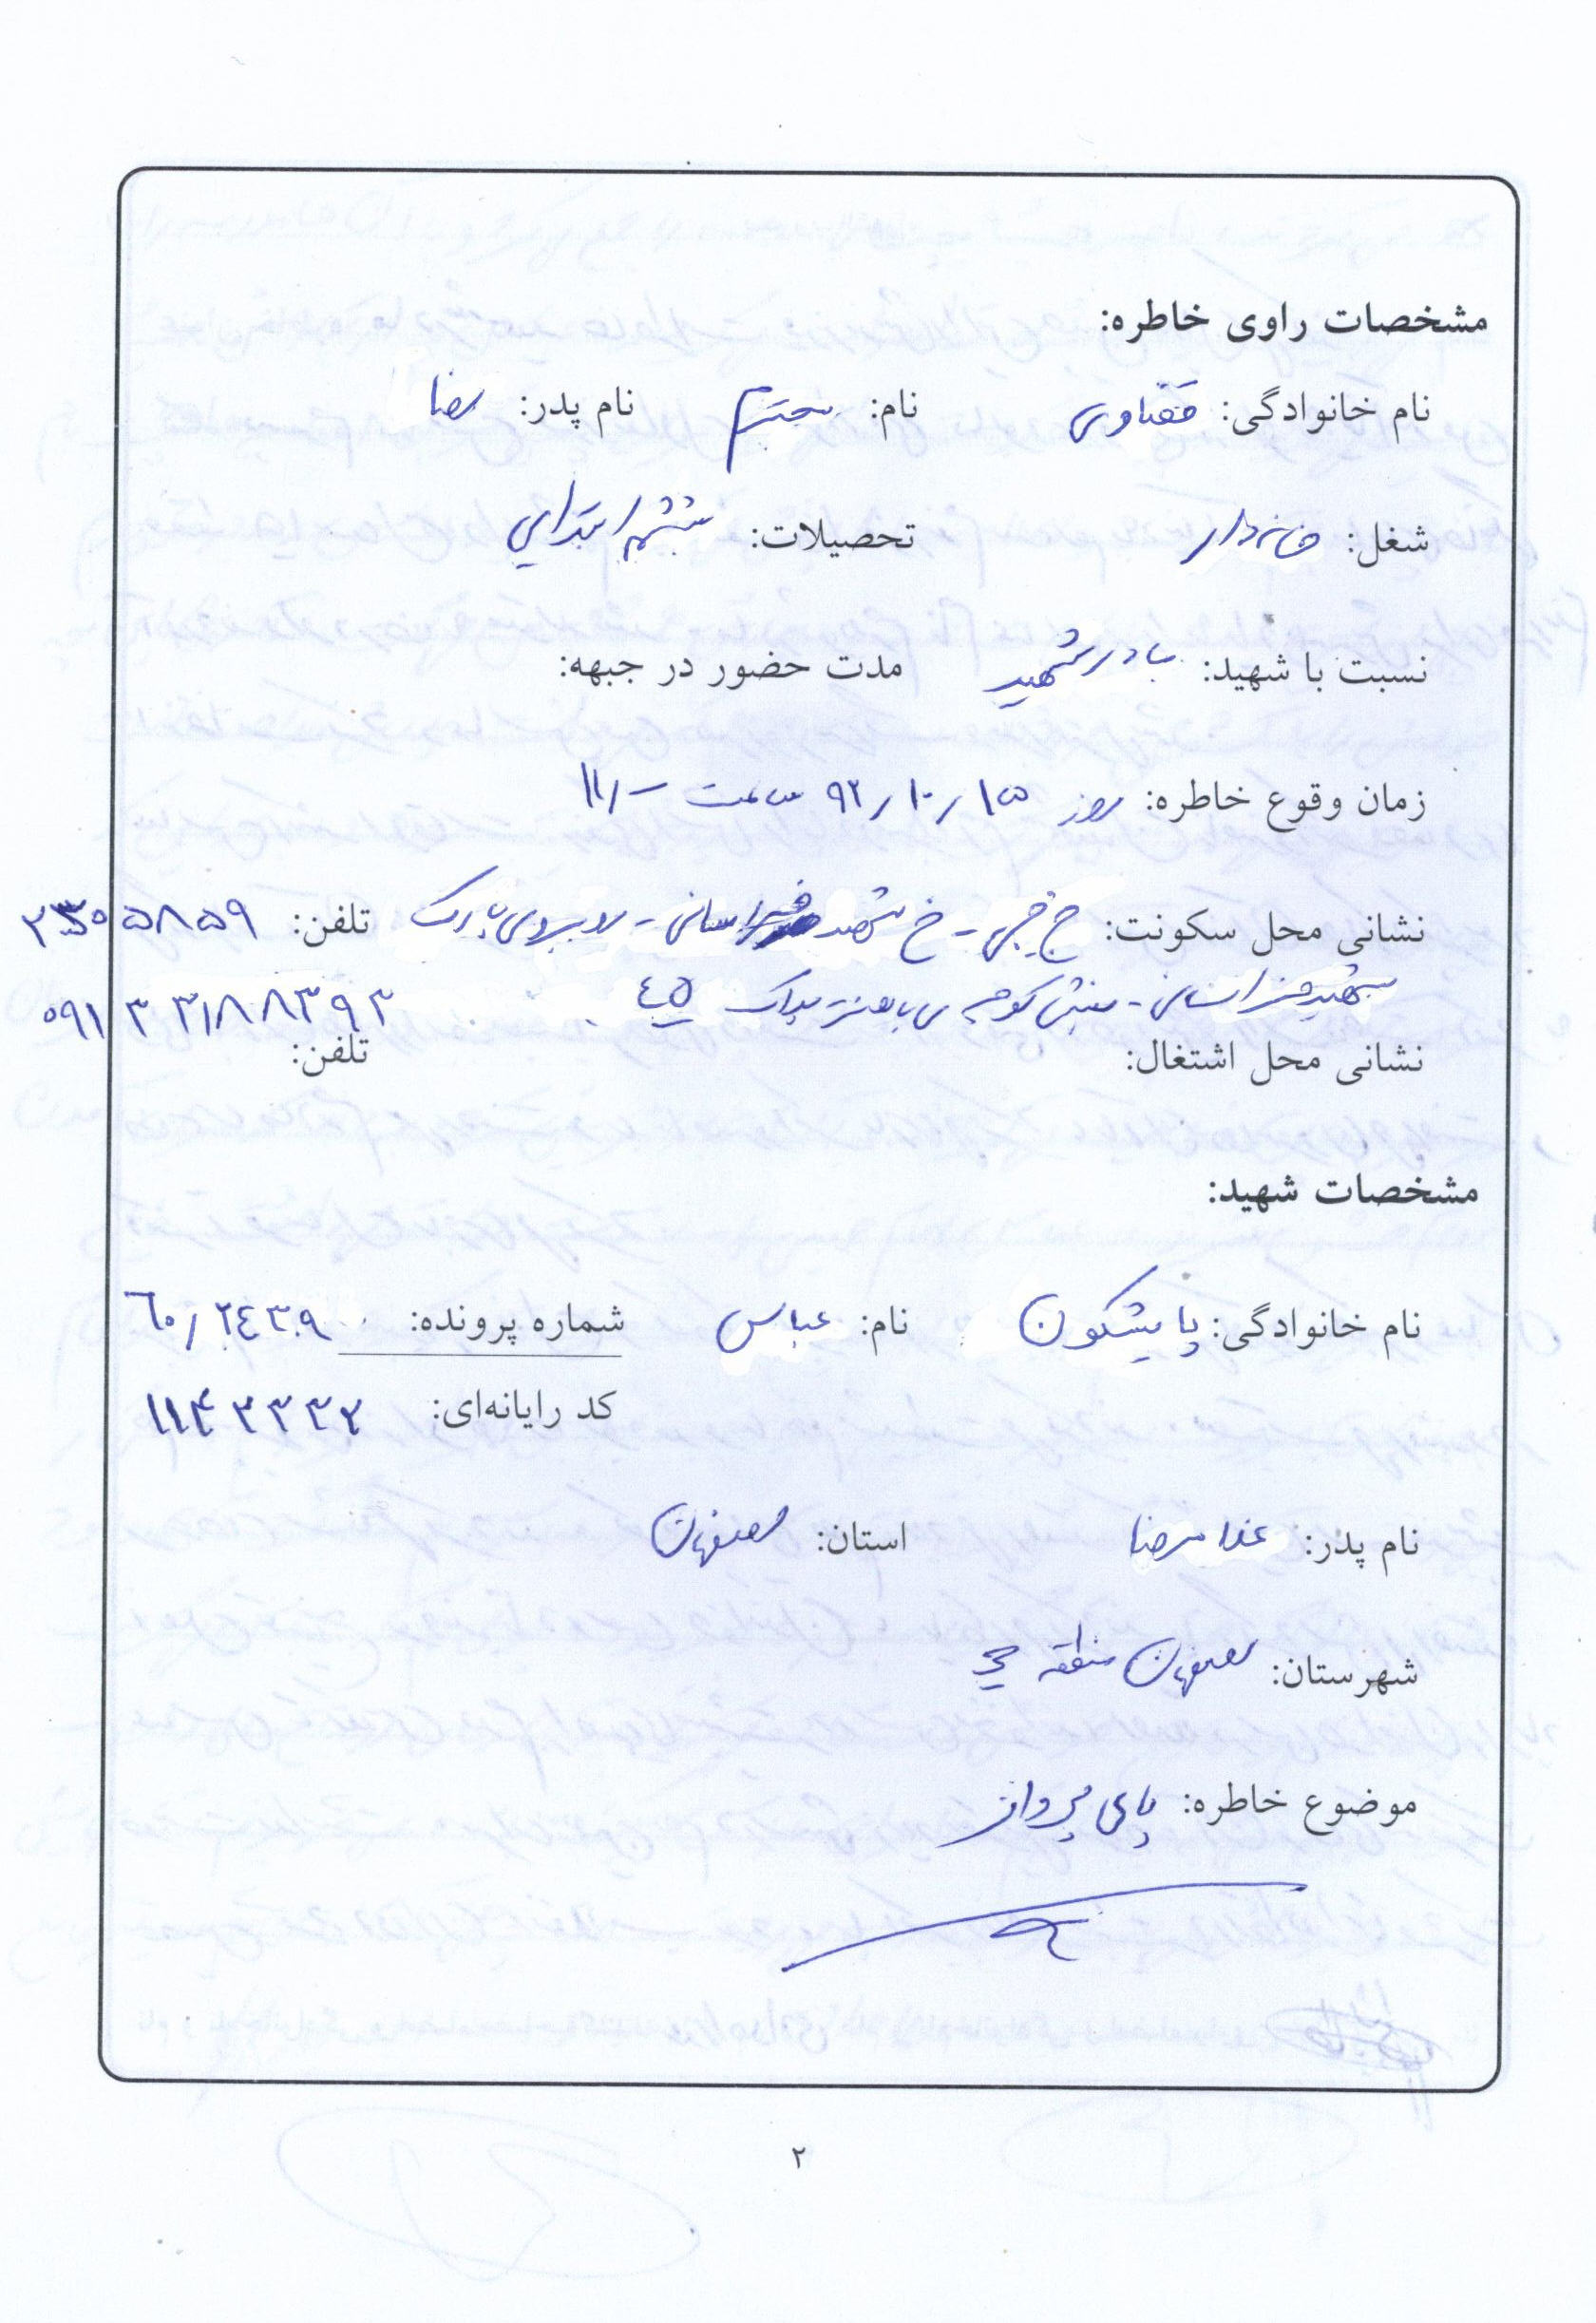 مشخصات راوی خاطره:
نام خانوادگی: قضاوی نام: محترم نام پدر: رضا
شغل: خانه‌دار تحصیلات: ششم ابتدایی
نسبت با شهید: مادر شهید مدت حضور در جبهه:
زمان وقوع خاطره: روز ۹۲/۱۰/۱۵ ساعت ۱۱/-
نشانی محل سکونت: خ جی - خ شهید خراسانی - روبروی پارک تلفن: ۲۳۰۵۸۵۹
شهید خراسانی - نبش کوچه ی پلاک ۴۵ ۰۹۱۳۳۱۸۸۳۹۲
نشانی محل اشتغال: تلفن:
مشخصات شهید:
نام خانوادگی: پایشکون نام: عباس شماره پرونده: ۶۰/۲۴۳۰۹
کد رایانه‌ای: ۱۱۴۳۳۳۲
نام پدر: غلامرضا استان: اصفهان
شهرستان: اصفهان منطقه
موضوع خاطره: پای پرواز
۲